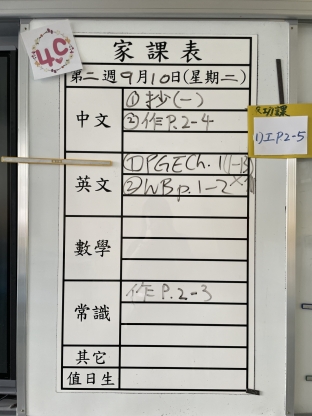 4C
家課表
第二週9月10日(星期二)
中文
①抄(一)
②作P.2-4
英文
①PGECh.1(1-13)
②WB p.1-2
數學
常識
作P.2-3
其它
值日生
1)工P.2-5